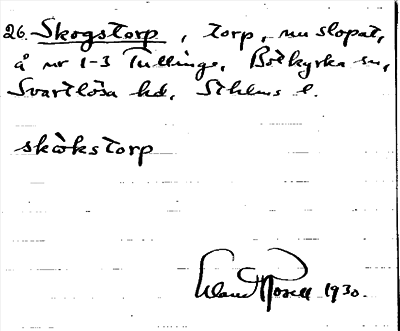 26. Skogstorp, torp, nu slopat,
å nr 1-3 Tullinge, Botkyrka sn,
Svartlösa hd, Sthlms l.
skòkstorp
1930.